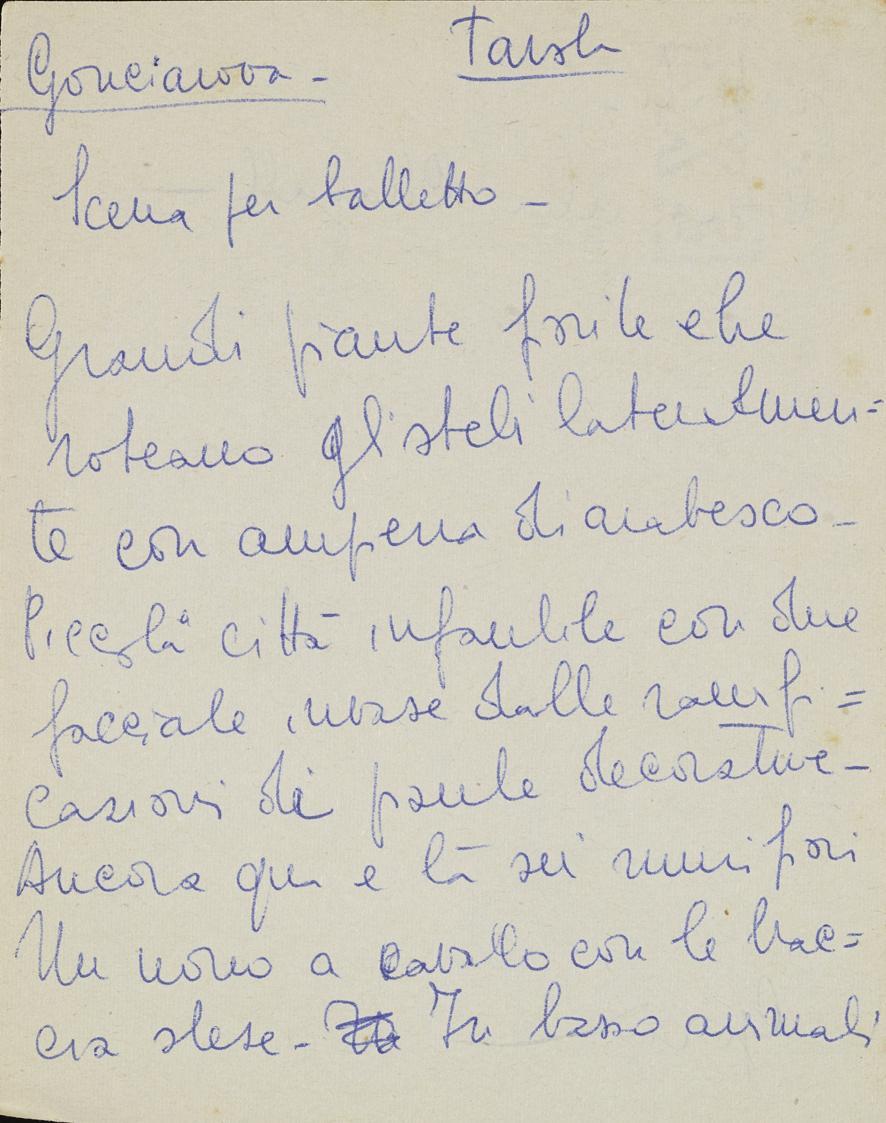 Gonciarova - Tavola
Scena per balletto -
Grandi piante fiorite che
roteano gli steli lateralmen=
te con ampena di arabesco -
Piccola città infantile con due
facciate invase dalle ramifi=
cazioni di piante decorative -
Ancora qua e là sui rami fiori
Un uomo a cavallo con le brac=
cia stese - In basso animali